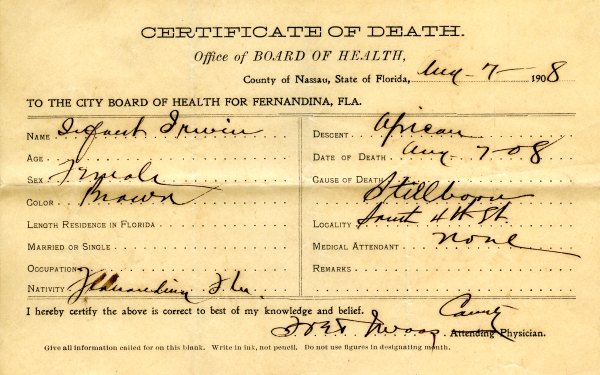 CERTIFICATE OF DEATH.
Office of BOARD OF HEALTH,
County of Nassau, State of Florida, Aug - 7 - 1908
TO THE CITY BOARD OF HEALTH FOR FERNANDINA, FLA.
NAME Infant Irwin
AGE
SEX Female
COLOR Brown
LENGTH RESIDENCE IN FLORIDA
MARRIED OR SINGLE
OCCUPATION
NATIVITY Fernandina Fla.
DESCENT African
DATE OF DEATH Aug 7-08
CAUSE OF DEATH Stillborn
LOCALITY South 4th St
MEDICAL ATTENDANT none
REMARKS
I hereby certify the above is correct to best of my knowledge and belief.
County
Attending Physician.
Give all information called for on this blank. Write in ink, not pencil. Do not use figures in designating month.